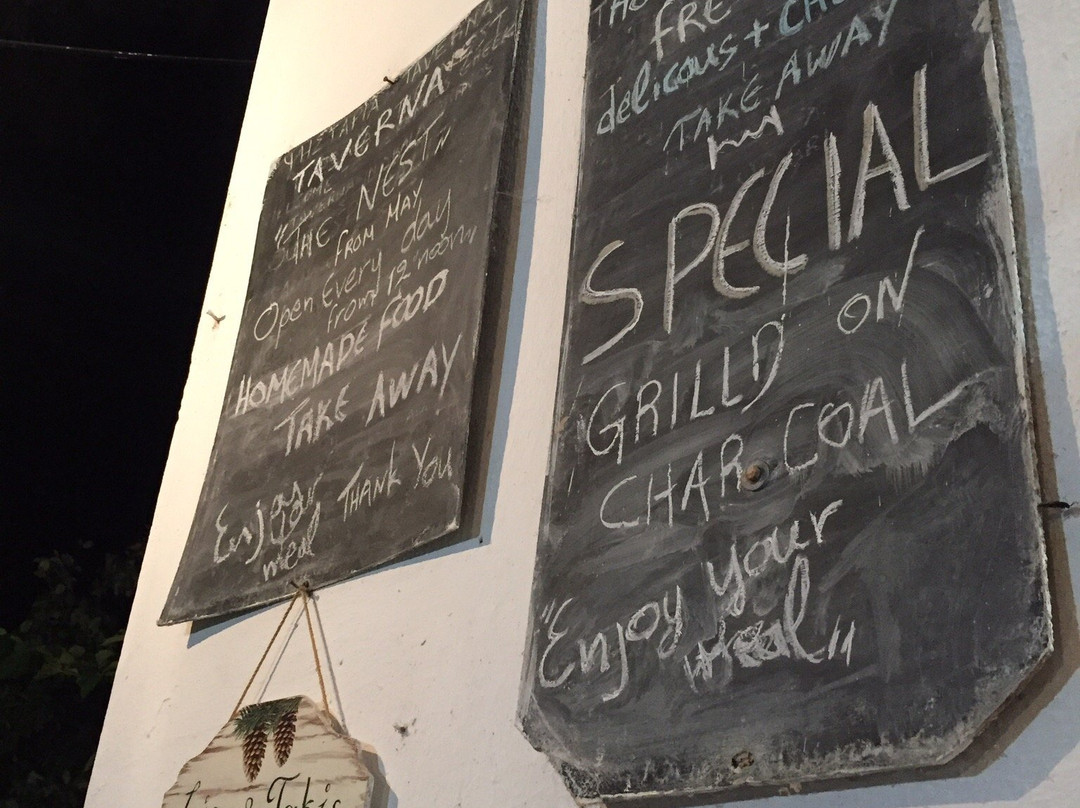 TAVERNA
"THE NEST"
FROM MAY
Open Every day
from 12 noon
HOMEMADE FOOD
TAKE AWAY
Enjoy your meal
THANK YOU
FRE
delicous + CH
TAKE AWAY
SPECIAL
GRILLD ON
CHAR COAL
"Enjoy your
meal"
& Takis